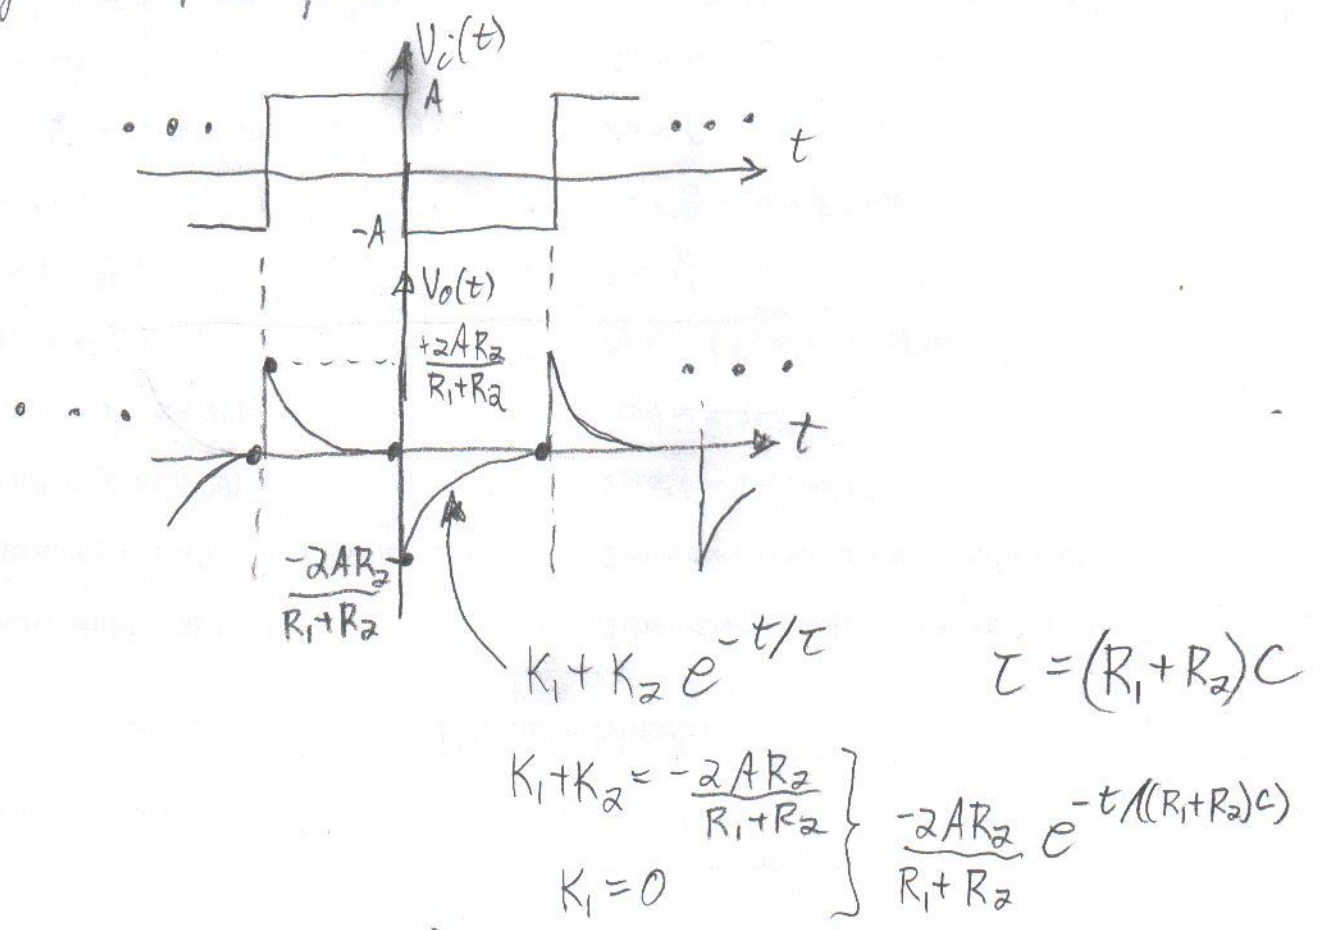 Vi(t)
A
t
-A
Vo(t)
+2AR2
R1+R2
t
-2AR2
R1+R2
K1+K2 e^-t/τ
τ=(R1+R2)C
K1+K2=-2AR2/R1+R2
K1=0
} -2AR2/R1+R2 e^-t/((R1+R2)C)